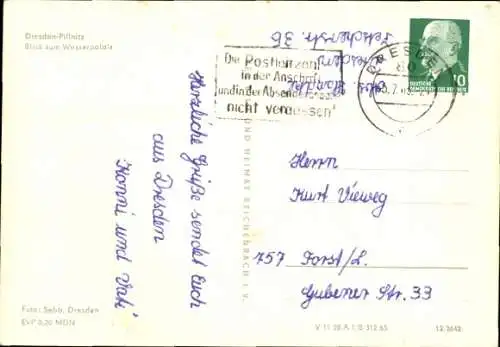 Dresden-Pillnitz
Blick zum Wasserpalais
Herzliche Grüße sendet Euch
aus Dresden
Konni und Vati
Foto: Seibb, Dresden
EVP 0,20 MDN
UND HEIMAT REICHENBACH I. V.
Dresden
Die Postleitzahl
in der Anschrift
und in der Absenderangabe
nicht vergessen!
DRESDEN
10
DEUTSCHE
DEMOKRATISCHE REPUBLIK
Herrn
Kurt Vieweg
757 Forst/L.
Gubener Str. 33
V 11 28 A 1/B 312/65
12-3642